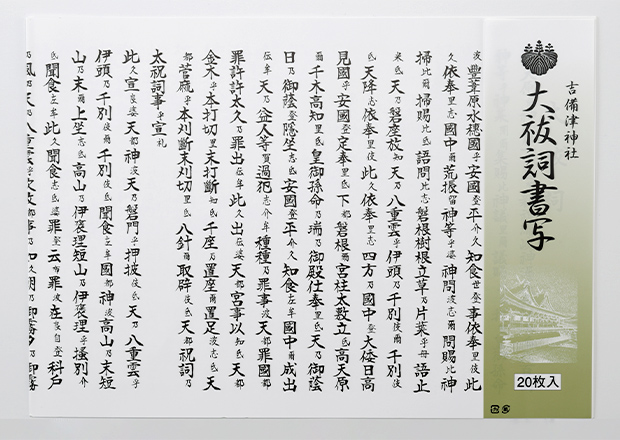 吉備津神社
大祓詞書写
20枚入
波豊葦原水穂國乎安國登平介久知食世登事依奉里伎此
久依奉里志國中爾荒振留神等乎婆神問波志爾問賜比神
掃比爾掃賜比氐語問比志磐根樹根立草乃片葉乎母語止
米氐天乃磐座放知天乃八重雲乎伊頭乃千別伎爾千別伎
氐天降志依奉里伎此久依奉里志四方乃國中登大倭日高
見國乎安國登定奉里氐下都磐根爾宮柱太敷立氐高天原
爾千木高知里氐皇御孫命乃瑞乃御殿仕奉里氐天乃御蔭
日乃御蔭登隠坐志氐安國登平介久知食左牟國中爾成出
伝牟天乃益人等賀過犯志介牟種種乃罪事波天都罪國都
罪許許太久乃罪出伝牟此久出伝婆天都宮事以知氐天都
金木乎本打切里末打斷知氐千座乃置座爾置足波志氐天
都菅麻乎本刈斷末刈切里氐八針爾取辟伎氐天都祝詞乃
太祝詞事乎宣礼
此久宣良婆天都神波天乃磐門乎押披伎氐天乃八重雲乎
伊頭乃千別伎爾千別伎氐聞食左牟國都神波高山乃末短
山乃末爾上坐志氐高山乃伊褒理短山乃伊褒理乎掻別介
氐聞食左牟此久聞食志氐婆罪登云布罪波在良自登科戸
乃風乃天乃八重雲乎吹放都事乃如久朝乃御霧夕乃御霧